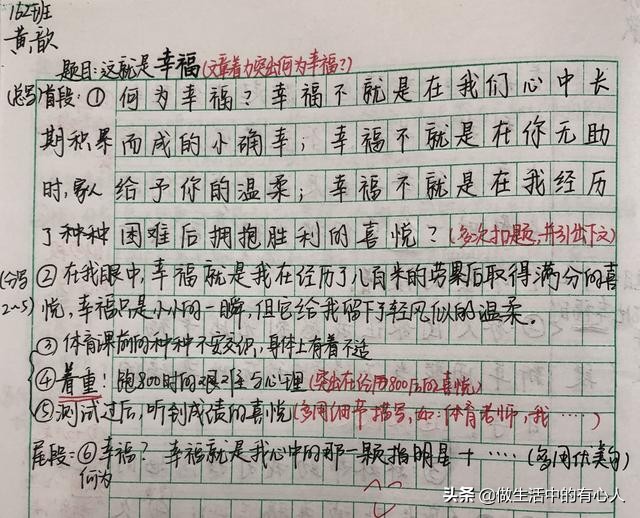 162班
黄歆
题目:这就是幸福(文章着力突出何为幸福?)
(总写)首段:①何为幸福?幸福不就是在我们心中长
期积累而成的小确幸;幸福不就是在你无助
时,家人给予你的温柔;幸福不就是在我经历
了种种困难后拥抱胜利的喜悦?(多次扣题,并引出下文)
(分写2~5)②在我眼中,幸福就是我在经历了八百米的劳累后取得满分的喜
悦,幸福只是小小的一瞬,但它给我留下了轻风似的温柔。
③体育课前的种种不安交织,身体上有着不适
④着重:跑800时的艰难与心理(突出在给用800后的喜悦)
⑤测试过后,听到成绩的喜悦(多用细节描写,如:体育老师,我……)
尾段:⑥何为幸福?幸福就是我心中的那一颗指明星+……(多用优美句)
头条@做生活中的有心人